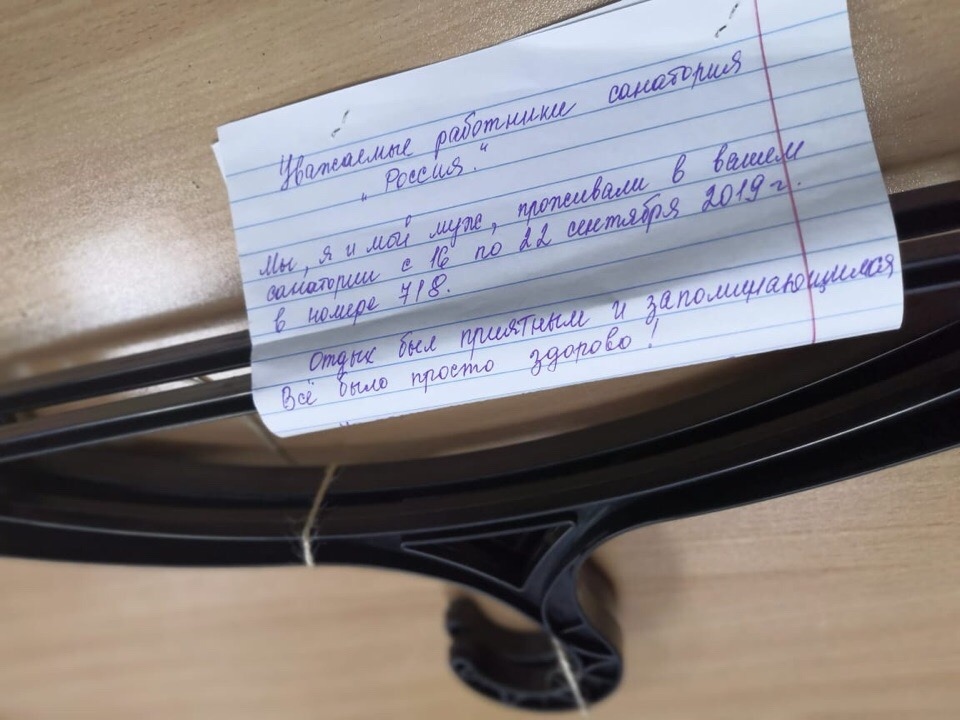 Уважаемые работники санатория
„Россия."
Мы, я и мой муж, проживали в вашем
санатории с 16 по 22 сентября 2019 г.
в номере 718.
Отдых был приятным и запоминающимся
Всё было просто здорово!